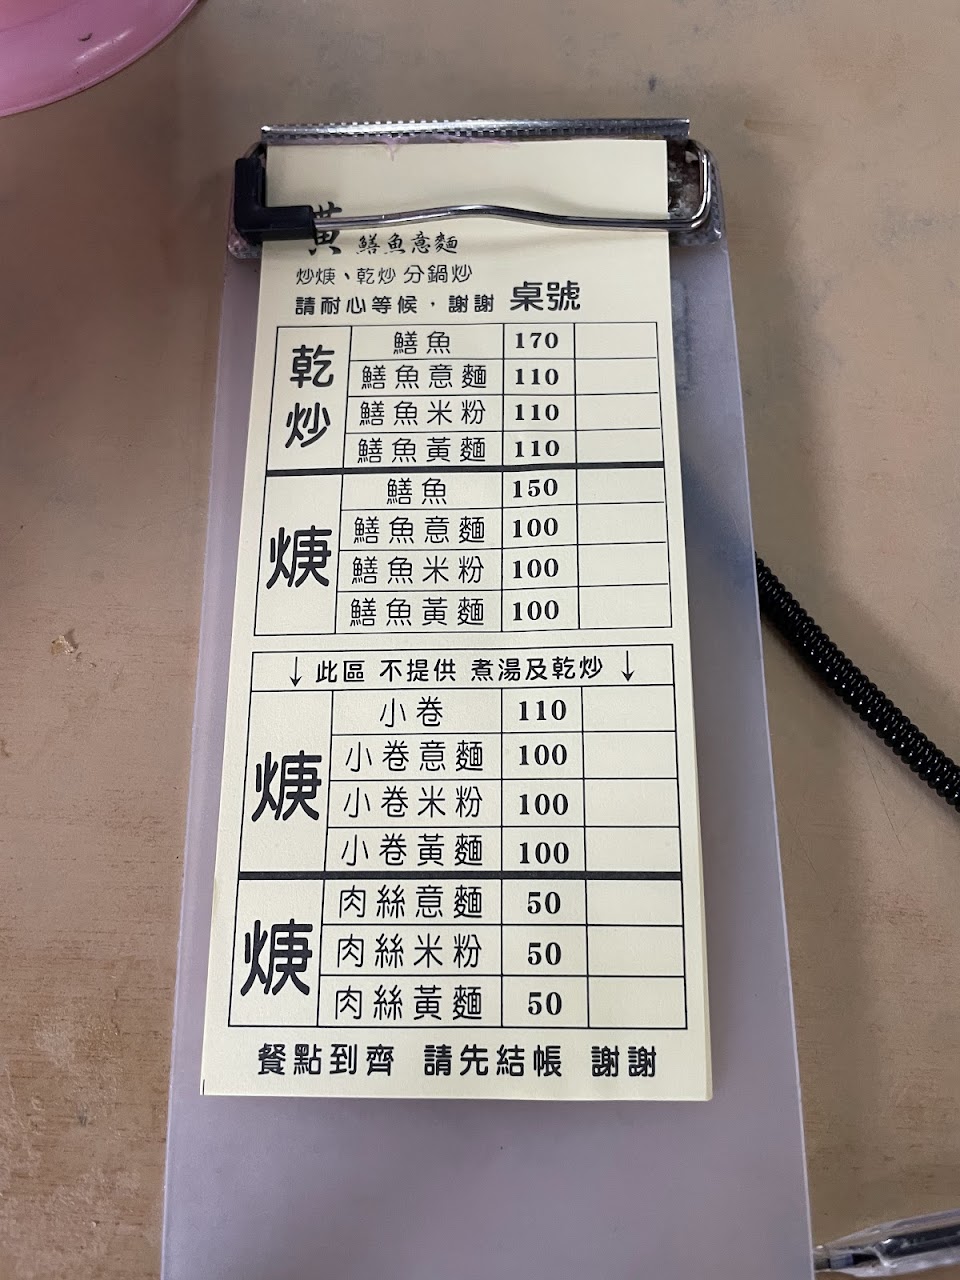 黃 鱔魚意麵
炒焿、乾炒 分鍋炒
請耐心等候，謝謝 桌號
乾炒
鱔魚 170
鱔魚意麵 110
鱔魚米粉 110
鱔魚黃麵 110
焿
鱔魚 150
鱔魚意麵 100
鱔魚米粉 100
鱔魚黃麵 100
↓此區 不提供 煮湯及乾炒↓
焿
小卷 110
小卷意麵 100
小卷米粉 100
小卷黃麵 100
焿
肉絲意麵 50
肉絲米粉 50
肉絲黃麵 50
餐點到齊 請先結帳 謝謝